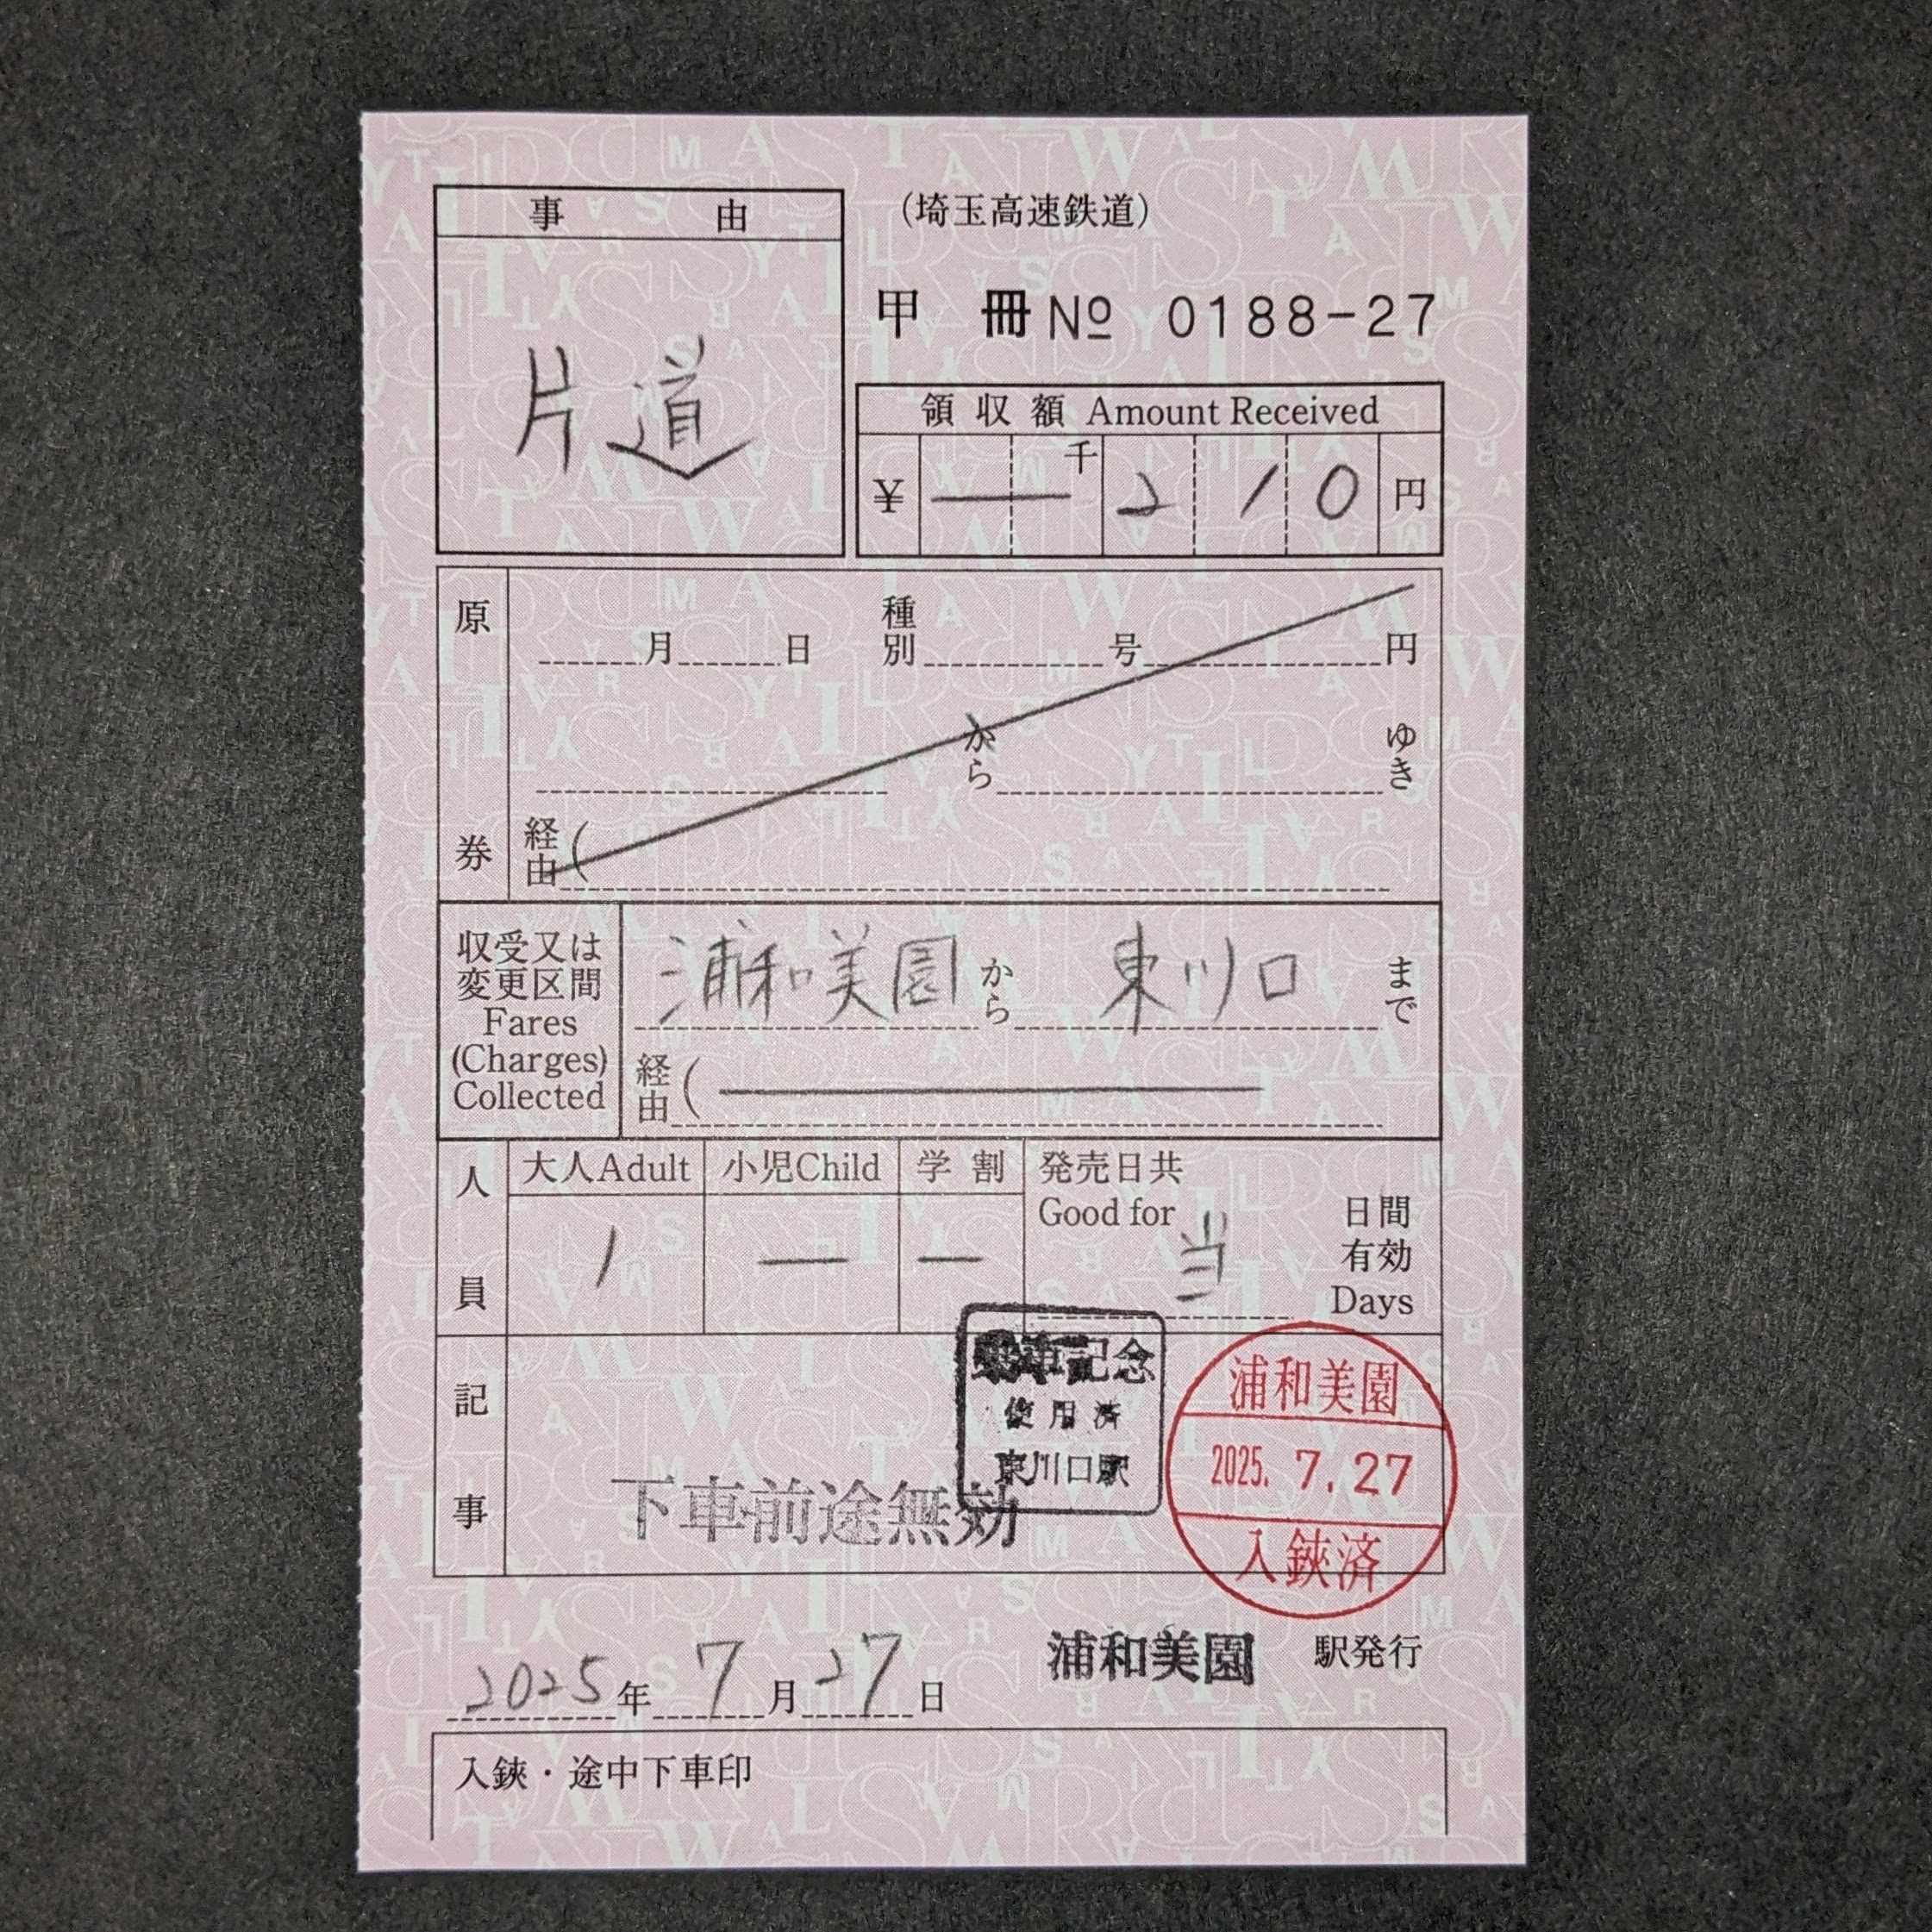 (埼玉高速鉄道)
事 由
片道
甲 冊 № 0188-27
領収額 Amount Received
千
¥ — 2 1 0 円
原券
月 日 種別 号 円
から ゆき
経由(
収受又は
変更区間
Fares
(Charges)
Collected
浦和美園 から 東川口 まで
経由(
人員
大人Adult 小児Child 学割
1 — —
発売日共
Good for 当 日間
有効
Days
記事
乗車記念
使用済
東川口駅
下車前途無効
浦和美園
2025. 7. 27
入鋏済
浦和美園 駅発行
2025年 7月 27日
入鋏・途中下車印